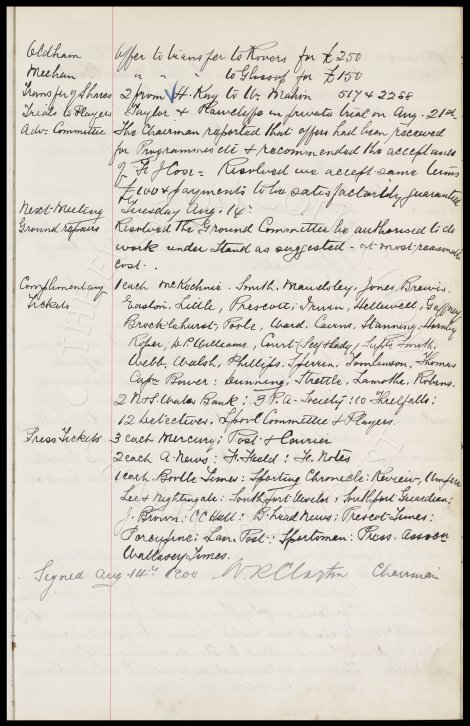 Oldham offer to transfer to Rovers for £250
Meehan " " " to Glossop for £150
Transfer of Shares 2 from H. Kay to W. Mahon 517 & 2258
Trials to Players Taylor & Rawcliffe in private trial on Aug. 21st
Adv. Committee The Chairman reported that offers had been received
for Programmes etc & recommended the acceptance
of Resolved we accept same terms
£100 & payments to be satisfactorily guaranteed
Next Meeting Tuesday Aug. 14th
Ground repairs Resolved the Ground Committee be authorised to do
work under stand as suggested - at most reasonable
cost -.
Complimentary 1 each McKechnie. Smith, Maudsley, Jones, Brewis,
Tickets Easton, Little, Prescott, Irwin, Hellewell, Gaffney
Brocklehurst, Poole, Ward, Cairns, Stanning, Hornby
Roper, W.P. Williams, Court, Supt. Smith,
Webb, Walsh, Phillips, Sperrin, Tomlinson, Thomas
Capt. Bower: Dunning, Lamothe,
2 N & S Wales Bank: 3 P.A. Society: 10 Threlfalls:
12 Detectives, L'pool Committee & Players.
Press Tickets 3 each Mercury; Post & Courier
2 each A. News: F. Field: F. Notes
1 each Bootle Times: Sporting Chronicle: Review, Umpire
Lee & Nightingale: Southport Visitor: Southport Guardian:
J. Brown: C.C. Hall: B'head News: Prescot Times:
Porcupine: Lan. Post: Sportsman: Press Assocn
Wallasey Times.
Signed Aug 14th 1900 W.R. Clayton Chairman